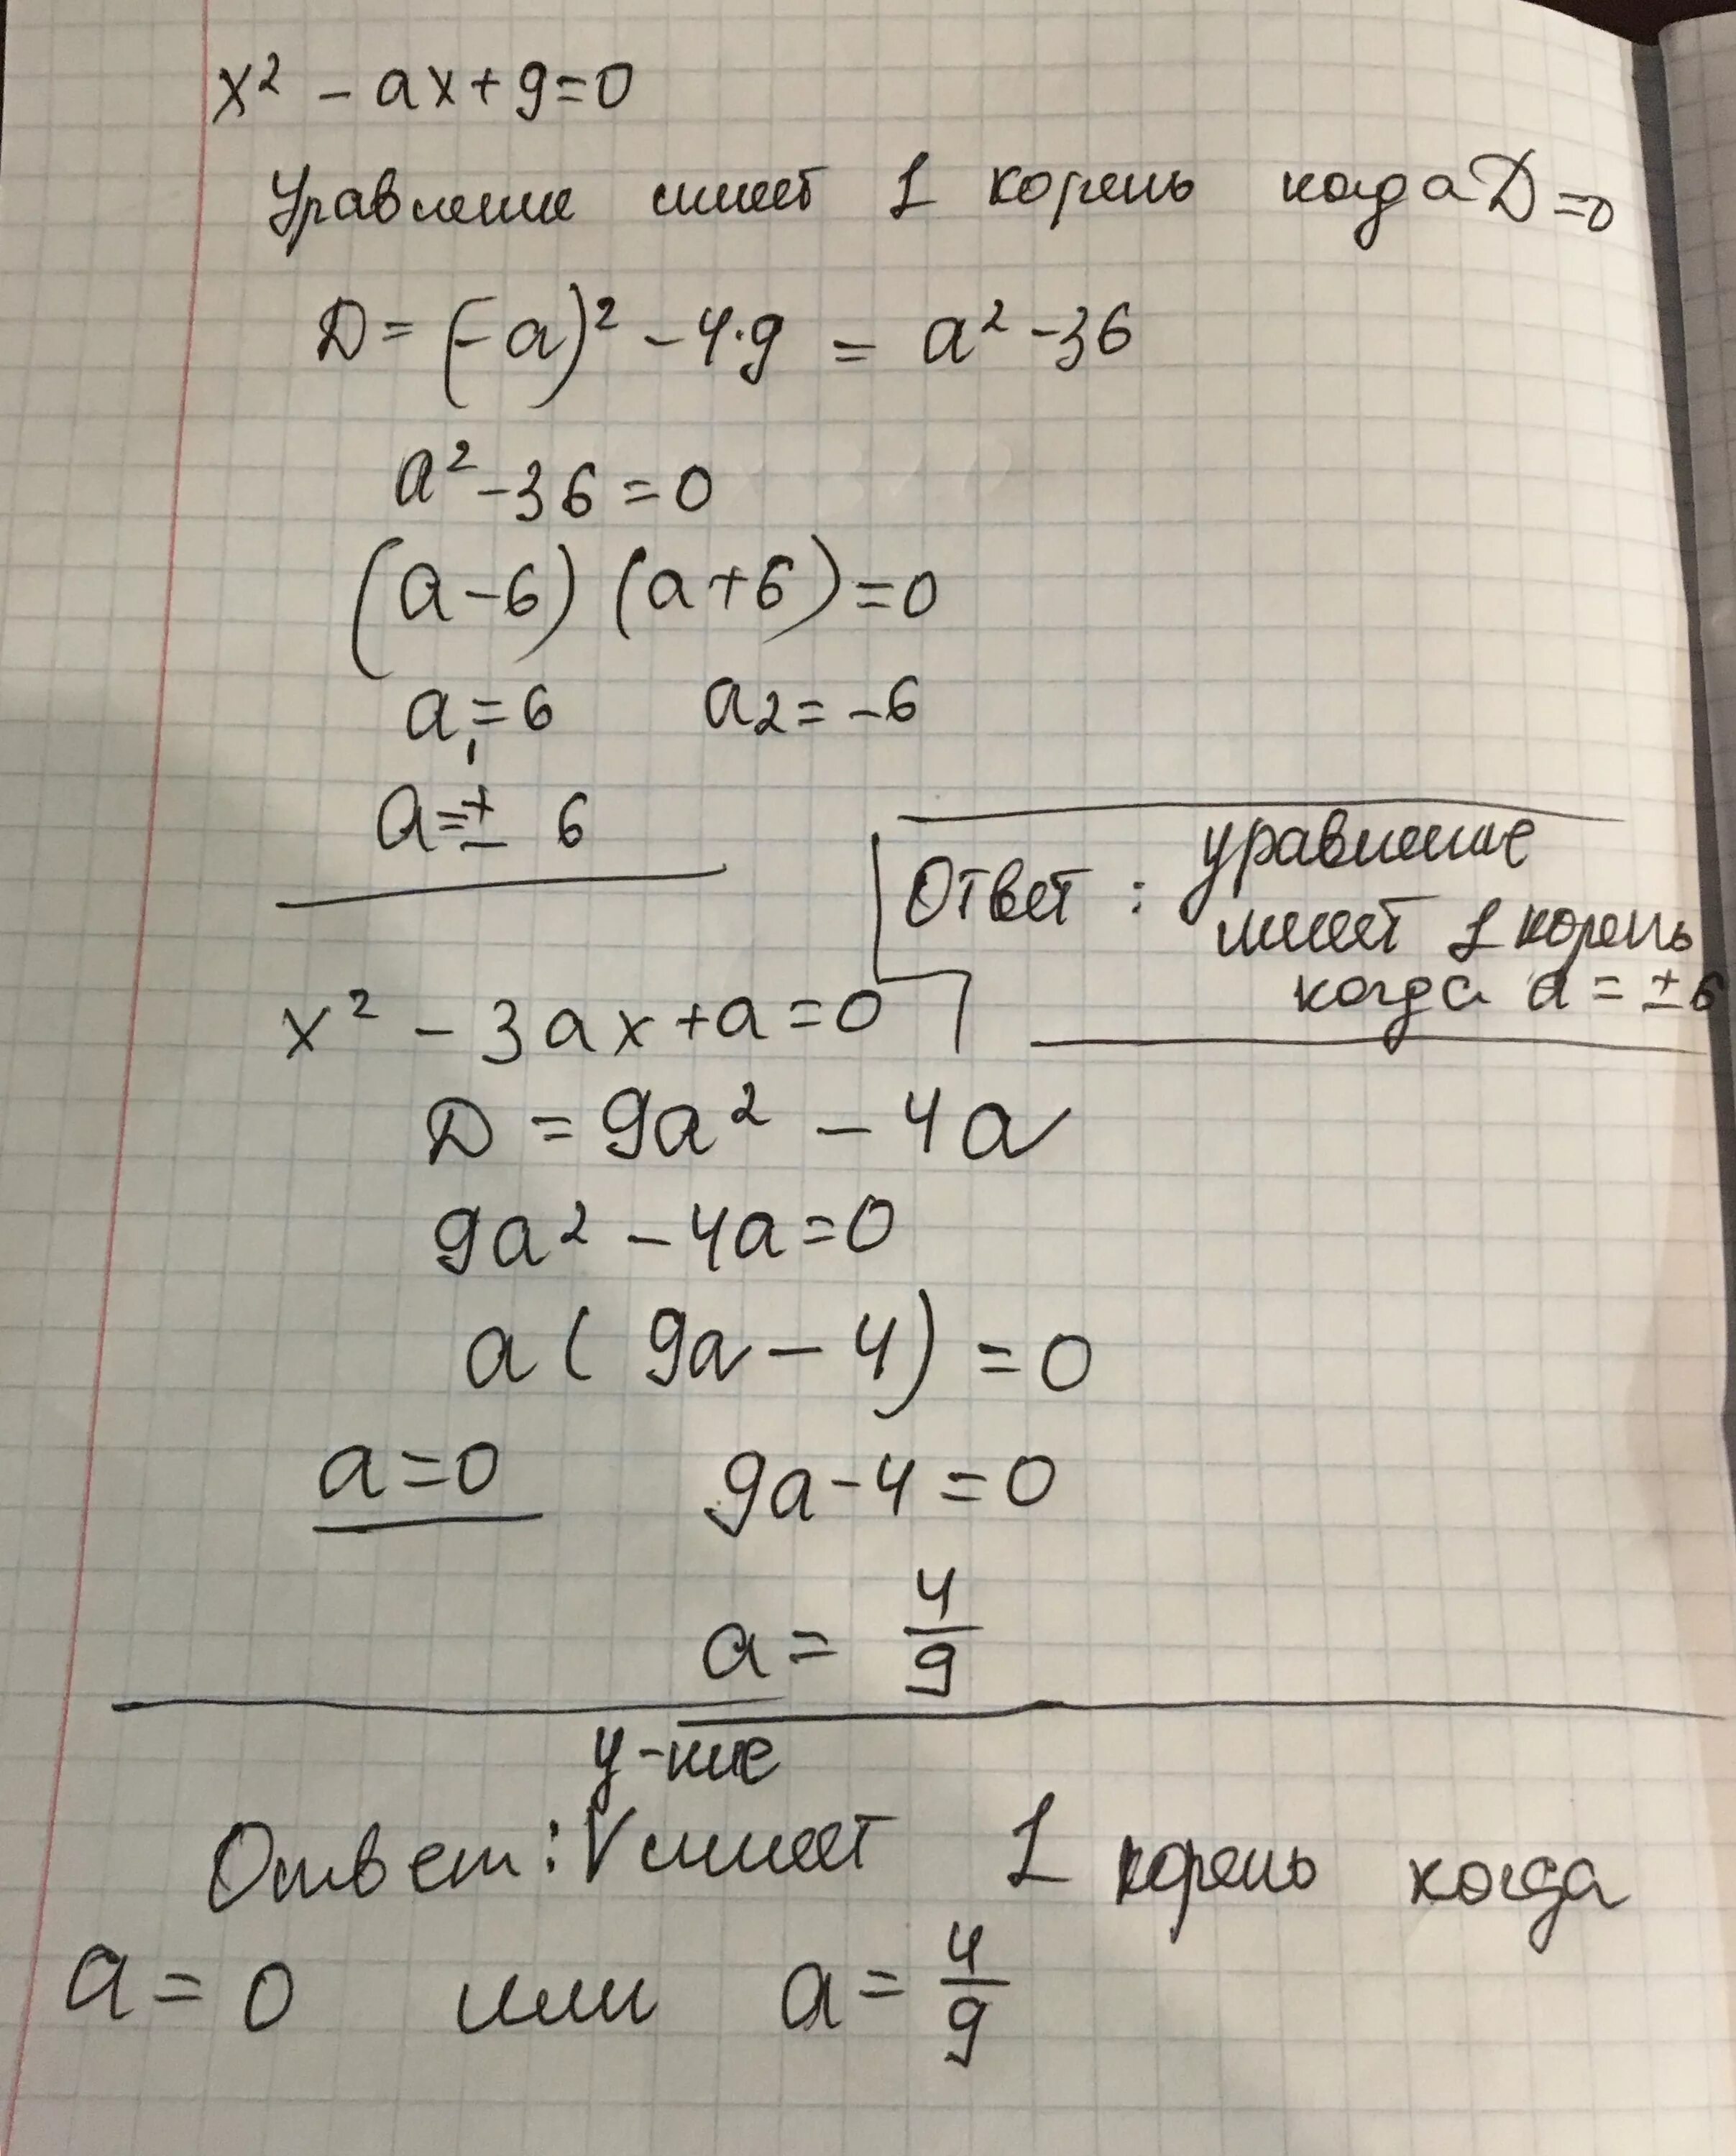 x² - ax + 9 = 0
Уравнение имеет 1 корень когда D = 0
D = (-a)² - 4·9 = a² - 36
a² - 36 = 0
(a - 6) (a + 6) = 0
a₁ = 6 a₂ = -6
a = ± 6
Ответ: уравнение
имеет 1 корень
когда a = ±6
x² - 3ax + a = 0
D = 9a² - 4a
9a² - 4a = 0
a ( 9a - 4) = 0
a = 0 9a - 4 = 0
a = 4/9
у-ние
Ответ: V имеет 1 корень когда
a = 0 или a = 4/9